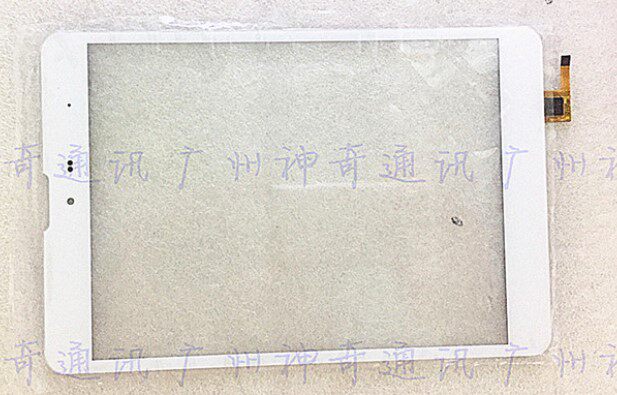 奇通讯 广州神奇通讯 广州
奇通讯 广州神奇通讯 广州神